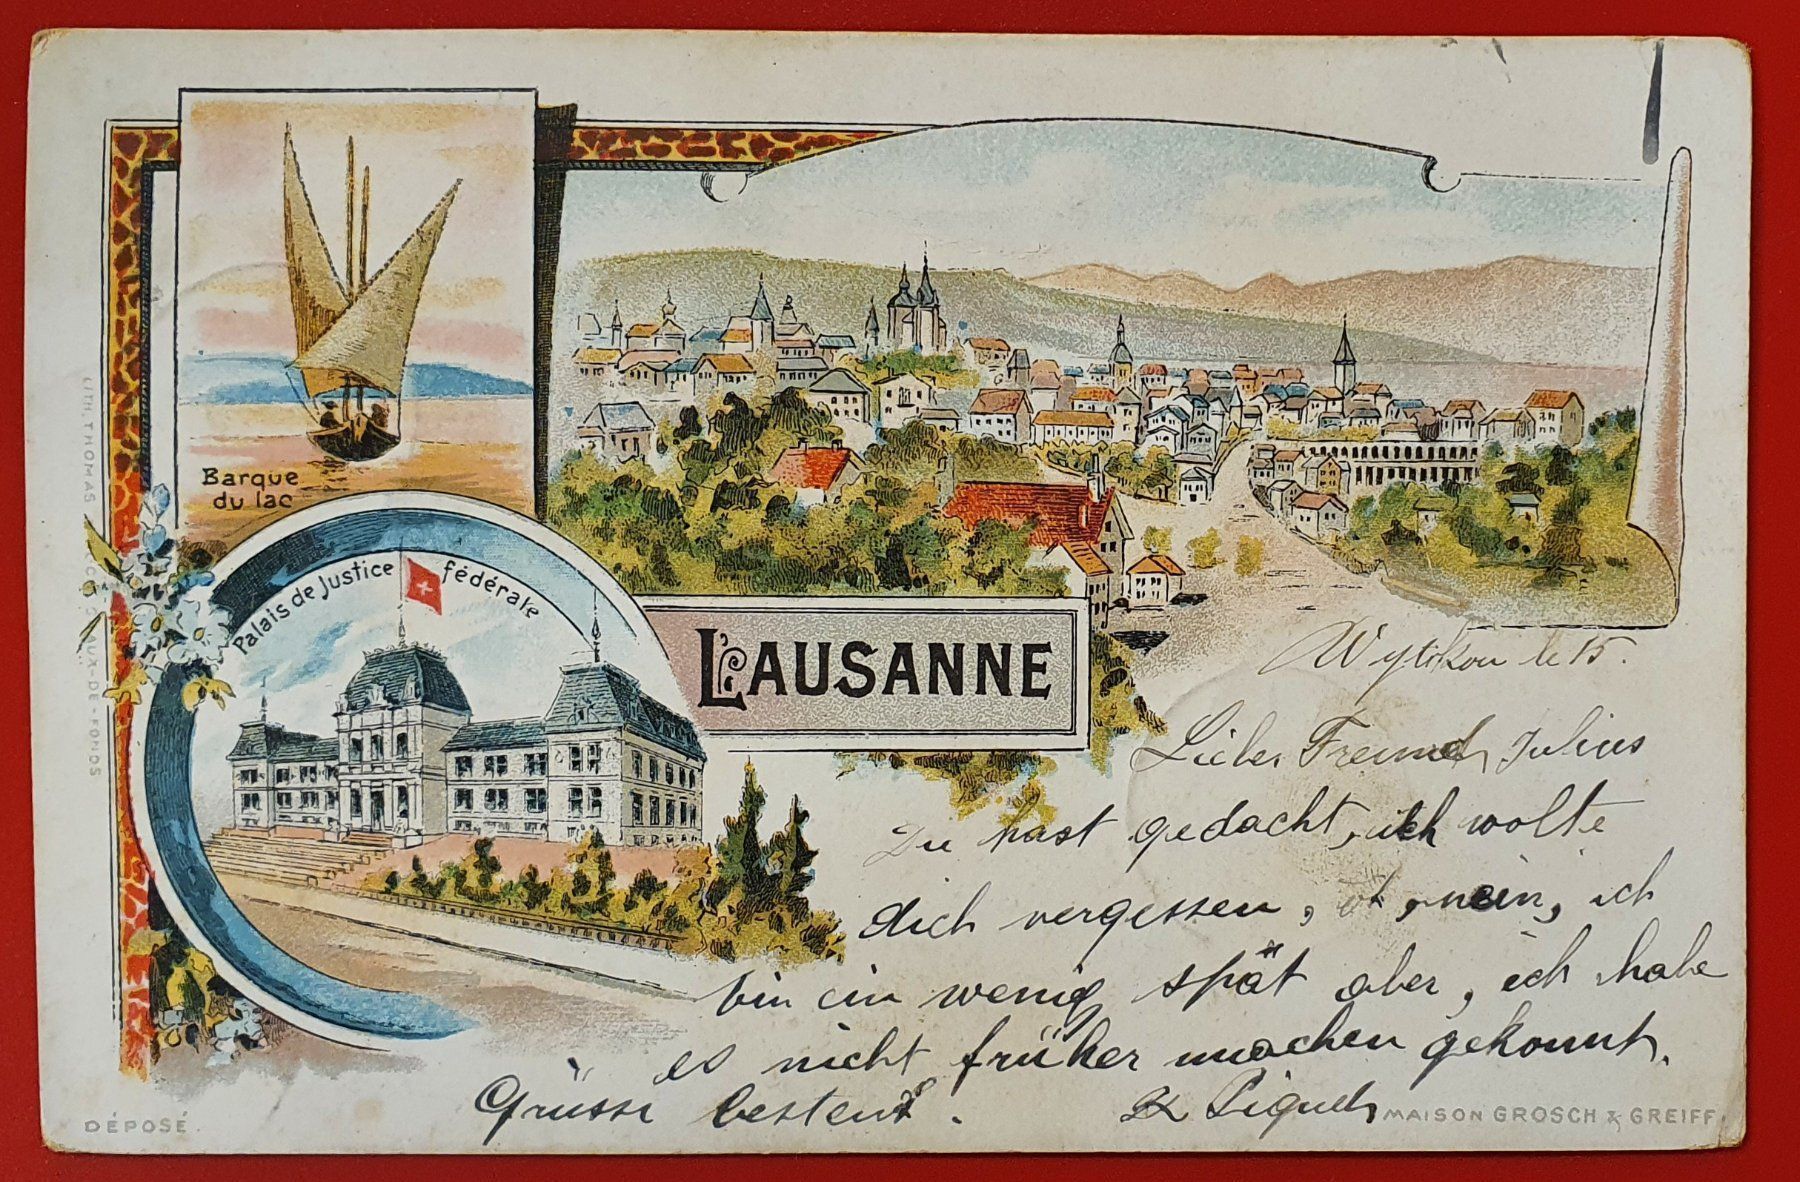 Barque
du lac
Palais de Justice fédérale
LAUSANNE
LITH. THOMAS
DE-FONDS
Wytikon le 15.
Lieber Freund Julius
Du hast gedacht, ich wolte
dich vergessen, nein, ich
bin ein wenig spät aber, ich habe
es nicht früher machen gekonnt.
Grüsse bestens.
Piguet
DÉPOSÉ.
MAISON GROSCH & GREIFF